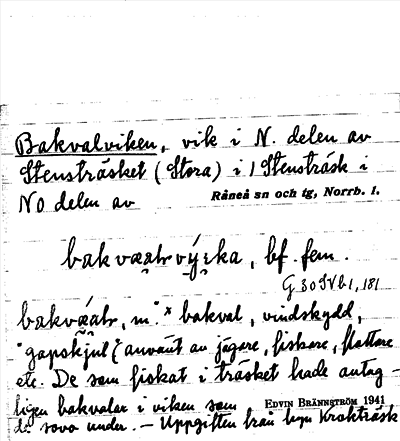 Bakvalviken, vik i N. delen av
Stensträsket (Stora) i 1 Stensträsk i
NO delen av Råneå sn och tg, Norrb. l.
bakvæatrvýska, bf. fem.
G 30 SV b 1, 181
m. x bakval, vindskydd,
"gapskjul" använt av jägare, fiskare, flottare
etc. De som fiskat i träsket hade antag-
ligen bakvalar i viken som
de sovo under. – Uppgiften från byn Kroktråsk
EDVIN BRÄNNSTRÖM 1941